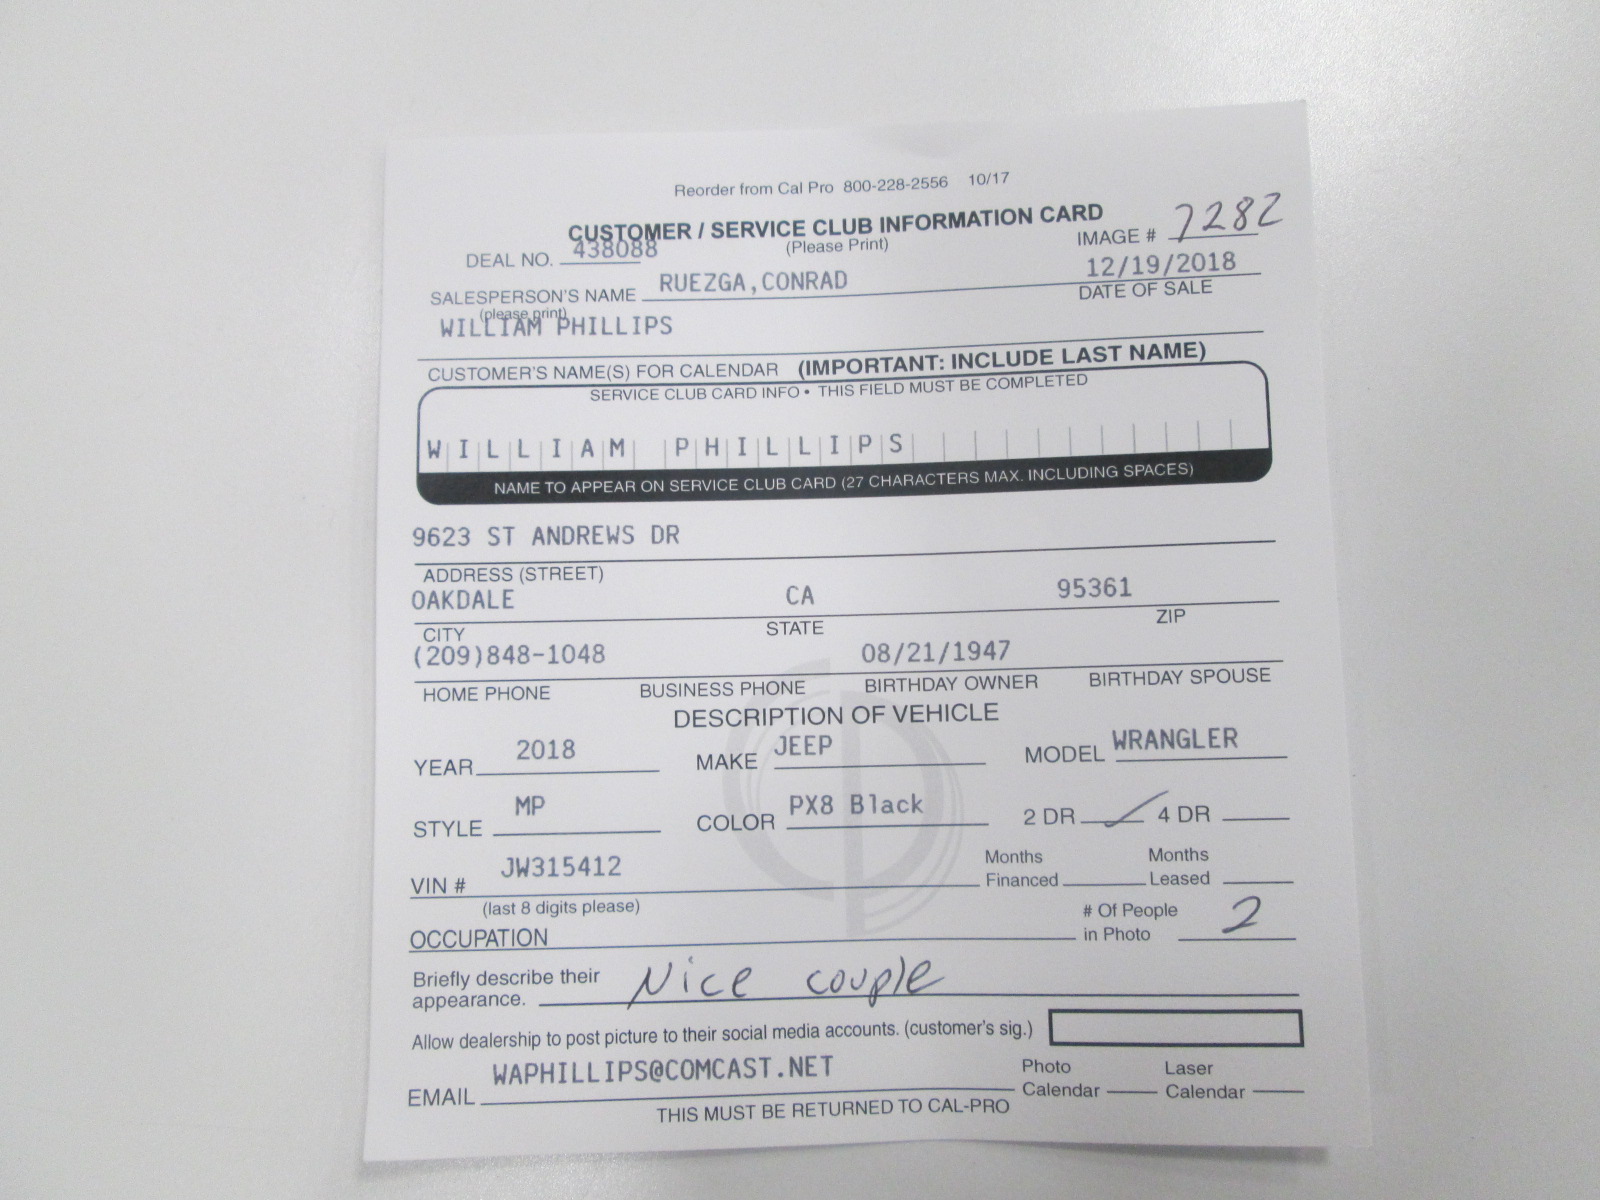 Reorder from Cal Pro 800-228-2556 10/17
CUSTOMER / SERVICE CLUB INFORMATION CARD
(Please Print)
DEAL NO. 438088
IMAGE # 7282
SALESPERSON'S NAME RUEZGA,CONRAD
(please print)
12/19/2018
DATE OF SALE
WILLIAM PHILLIPS
CUSTOMER'S NAME(S) FOR CALENDAR (IMPORTANT: INCLUDE LAST NAME)
SERVICE CLUB CARD INFO • THIS FIELD MUST BE COMPLETED
WILLIAM PHILLIPS
NAME TO APPEAR ON SERVICE CLUB CARD (27 CHARACTERS MAX. INCLUDING SPACES)
9623 ST ANDREWS DR
ADDRESS (STREET)
OAKDALE CA 95361
CITY STATE ZIP
(209)848-1048 08/21/1947
HOME PHONE BUSINESS PHONE BIRTHDAY OWNER BIRTHDAY SPOUSE
DESCRIPTION OF VEHICLE
YEAR 2018 MAKE JEEP MODEL WRANGLER
STYLE MP COLOR PX8 Black 2 DR ✓ 4 DR
VIN # JW315412 Months Financed Months Leased
(last 8 digits please)
OCCUPATION # Of People in Photo 2
Briefly describe their appearance. Nice couple
Allow dealership to post picture to their social media accounts. (customer's sig.)
EMAIL WAPHILLIPS@COMCAST.NET Photo Calendar Laser Calendar
THIS MUST BE RETURNED TO CAL-PRO